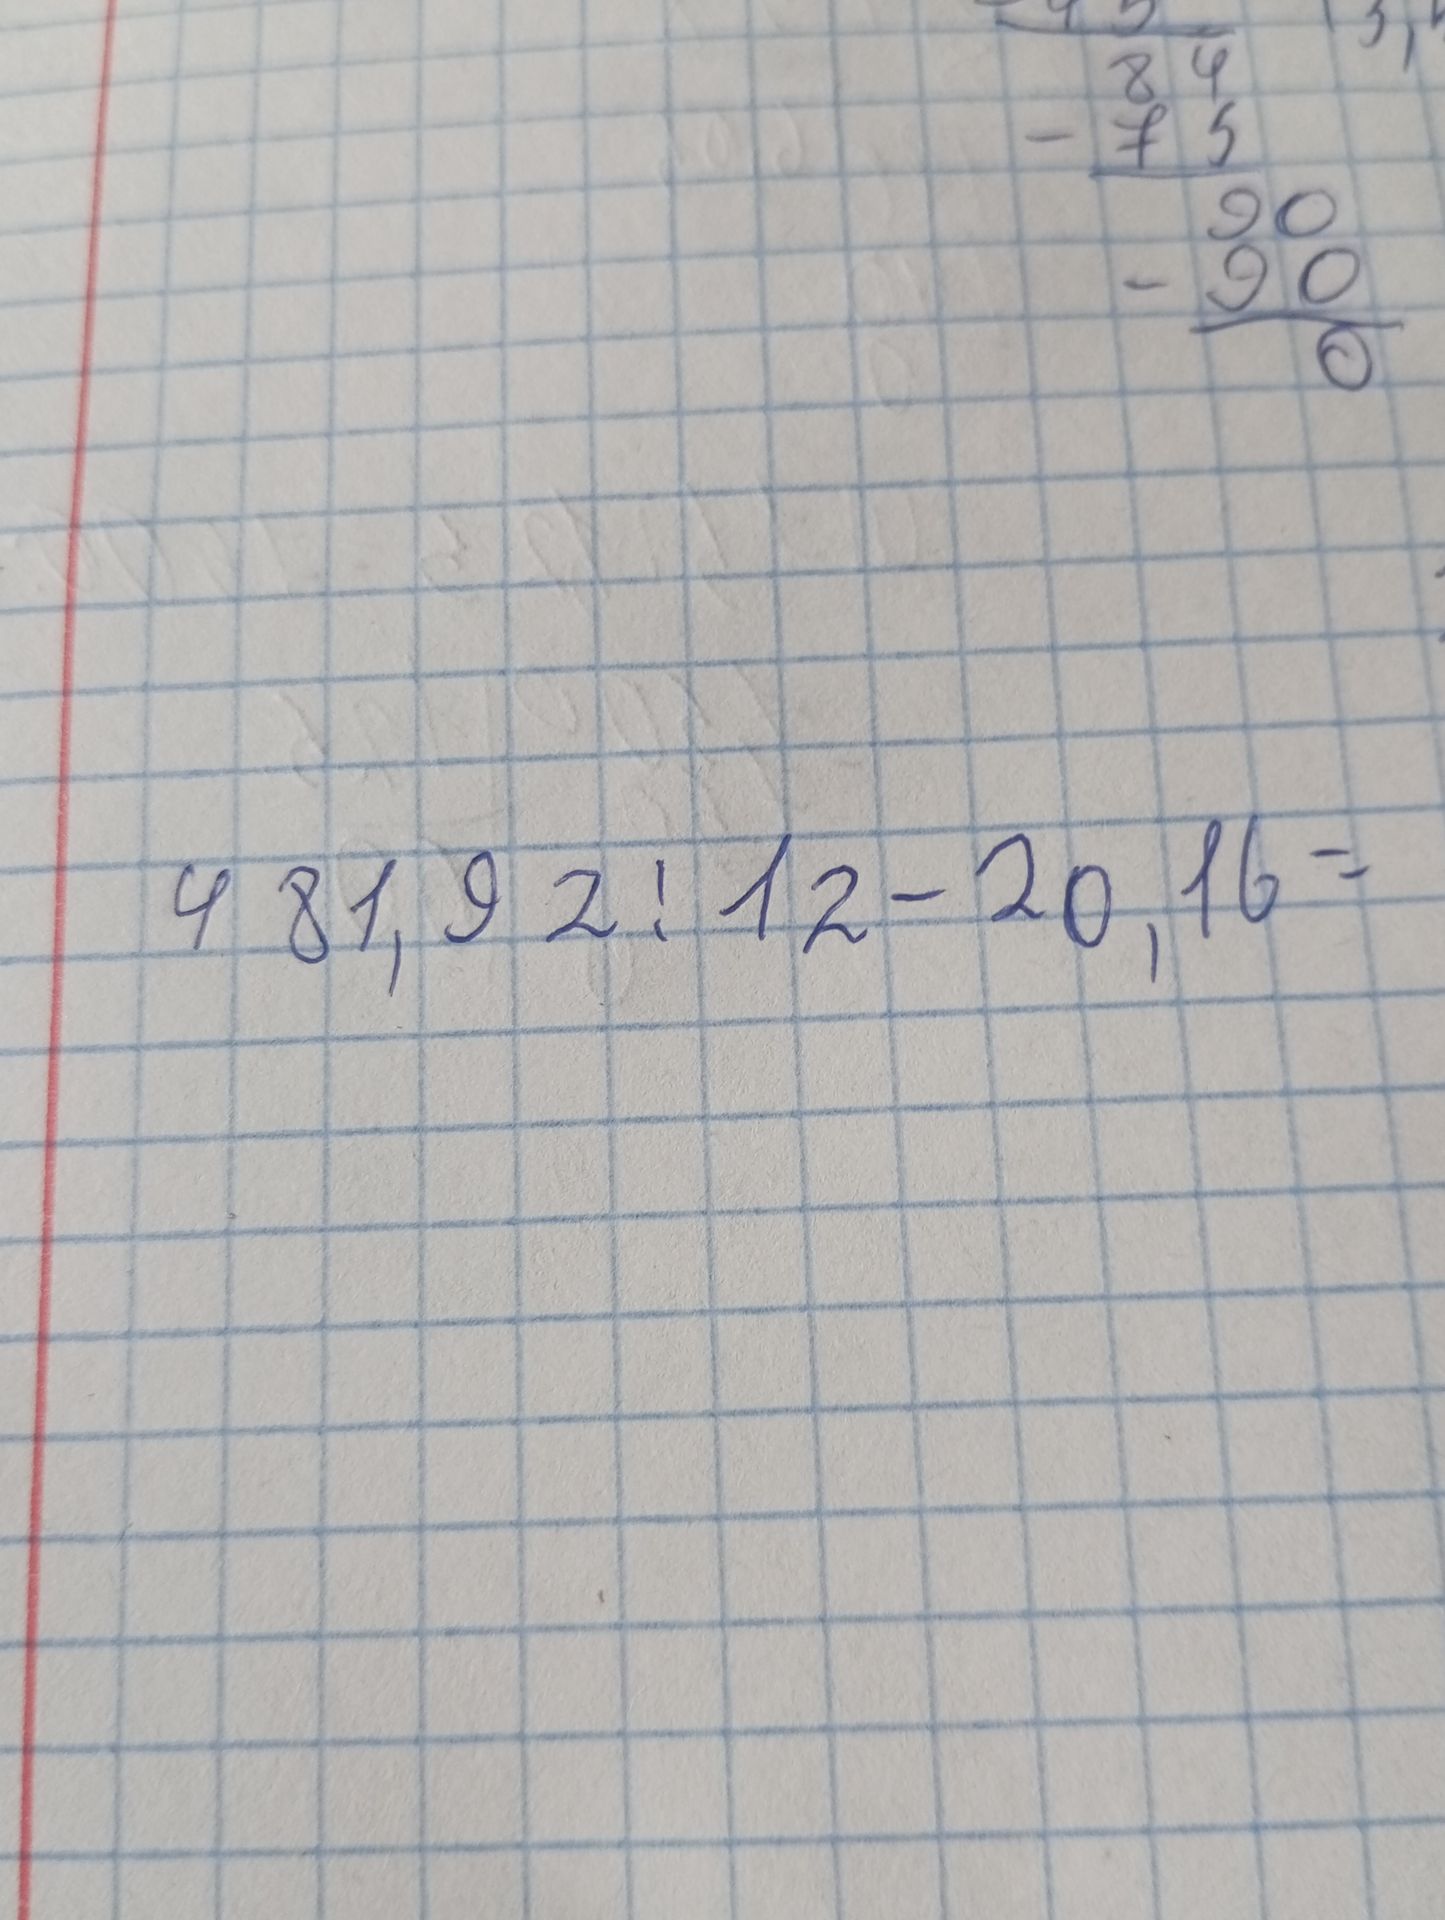 84
- 75
90
- 90
0
481,92 : 12 - 20,16 =